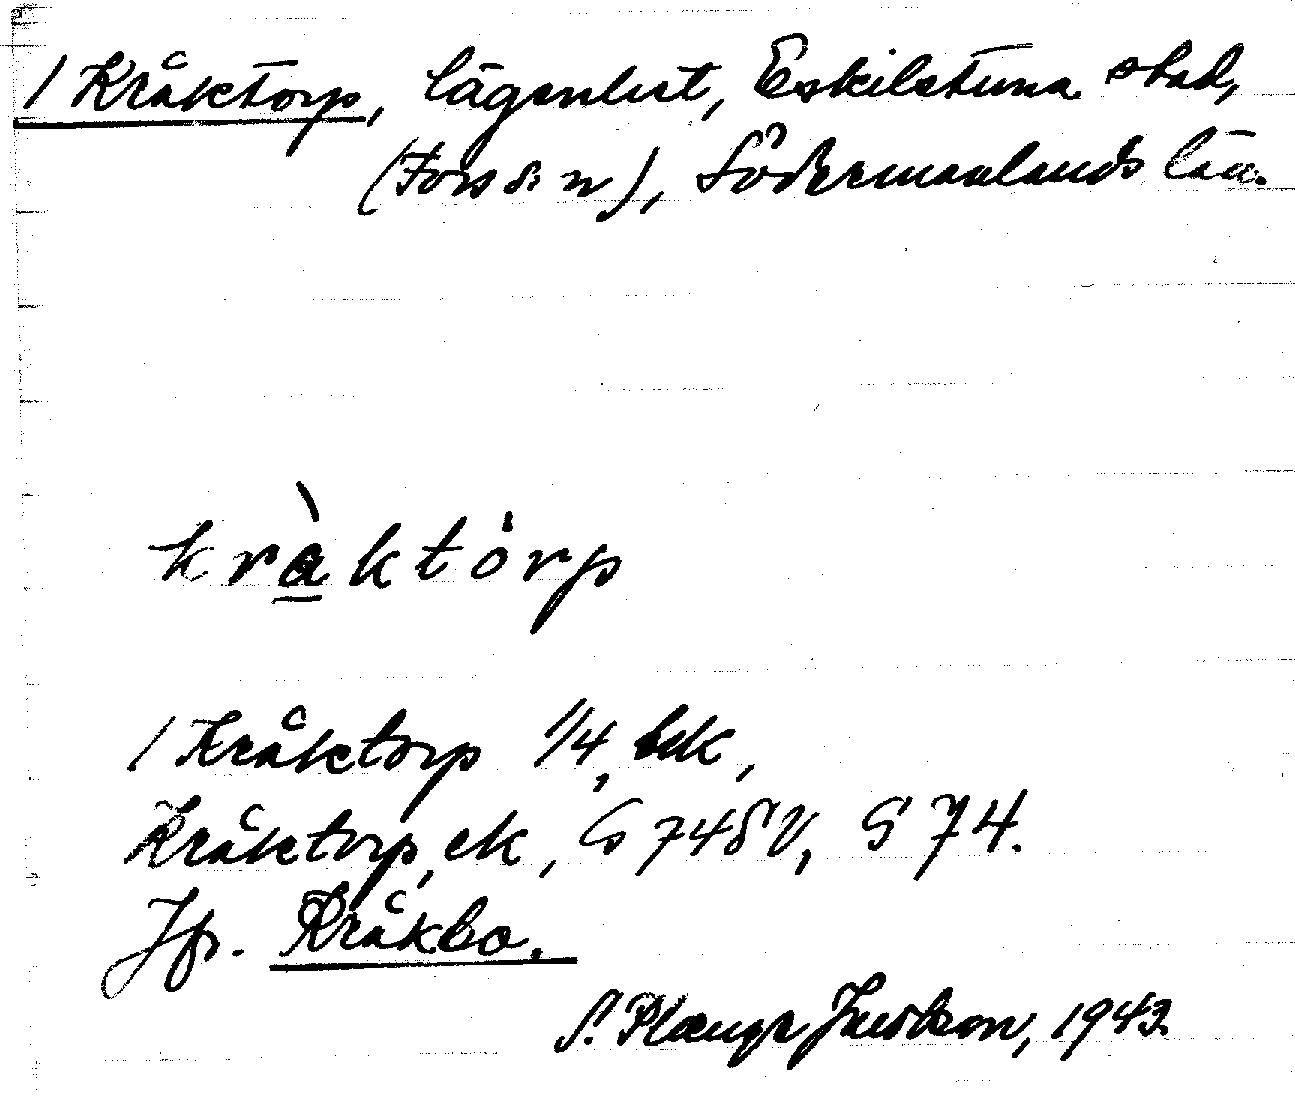 / Kråktorp, lägenhet, Eskilstuna stad,
(Fors sn), Södermanlands län.
kràktȯrp
/ Kråktorp 1/4, bek,
Kråktorp, ek, G 74 SV, S 74.
Jfr. Kråkbo.
S. 1943.